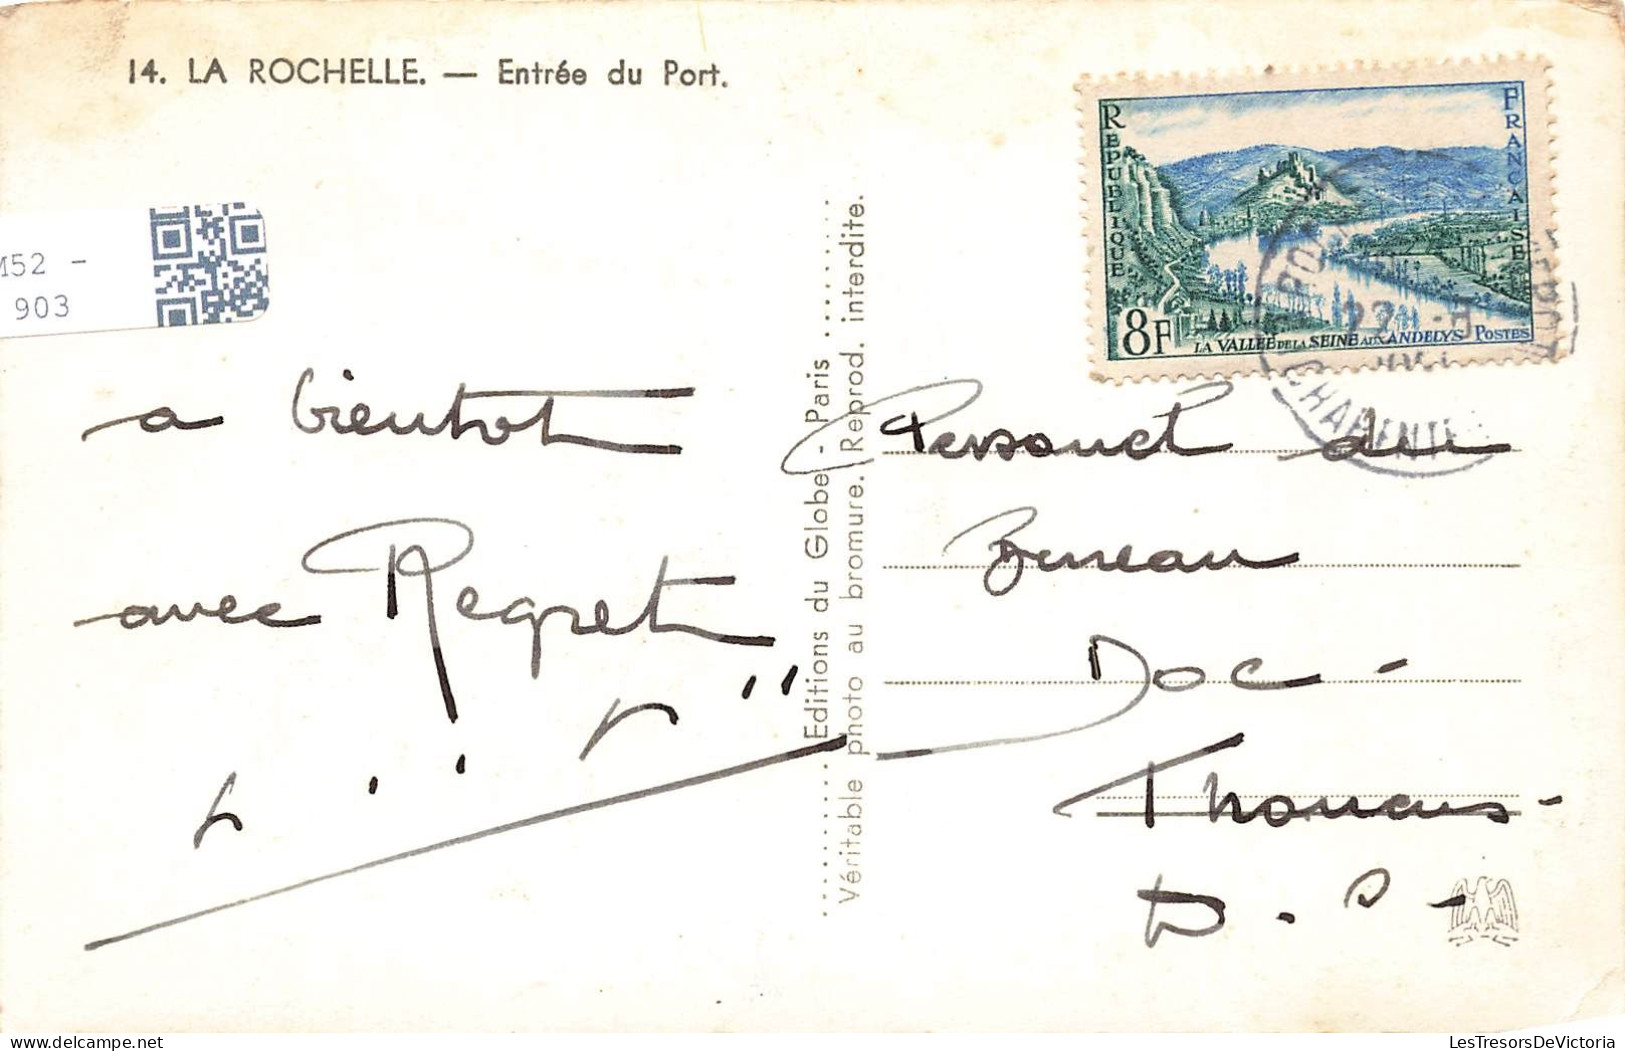 14. LA ROCHELLE. — Entrée du Port.
RÉPUBLIQUE
FRANÇAISE
8F
LA VALLÉE DE LA SEINE AUX ANDELYS POSTES
CHARENTE
M52 -
903
a bientot
avec Regret
Editions du Globe - Paris
Véritable photo au bromure. Reprod. interdite.
Personnel du
Bureau
Doc -
Thouars -
D. S -
LesTresorsDeVictoria